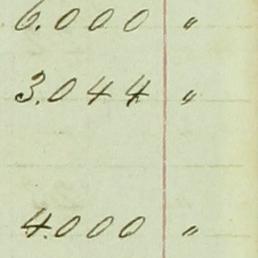 6.000 "
3.044 "
4.000 "